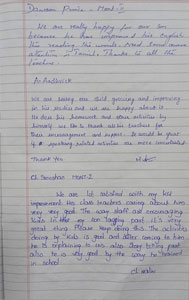 Dawson Punia - Mont-2
We are really happy for our son
because he has improved his English
This reading and words. Need Some more
attention in Tamil. Thanks to all the
teachers.
A. Rudhvick
We are seeing our child growing and improving
in his studies and we are happy about it.
He does his homework and other activities by
himself. we like to thank all the teachers for
their encouragement and support. It would be great
if speaking related activities are more concentrated
Thank You
Mont-2
We are lit satisfied with my kid
improvement. His class teachers caring about him
very very good. The way staff are encouraging
kids in their very ton laughing part it's very
great thing. Please keep doing this. The activities
doing by kids is good and after coming to home
he is explaining to us also. Story telling part
also he is very good by the way he trained
in school